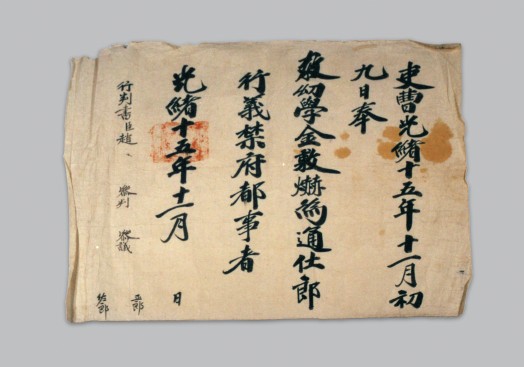 吏曹光緒十五年十一月初
九日奉
敎幼學金爲通仕郎
行義禁府都事者
光緒十五年十一月 日
行判書臣趙 參判 參議
正郎
佐郎